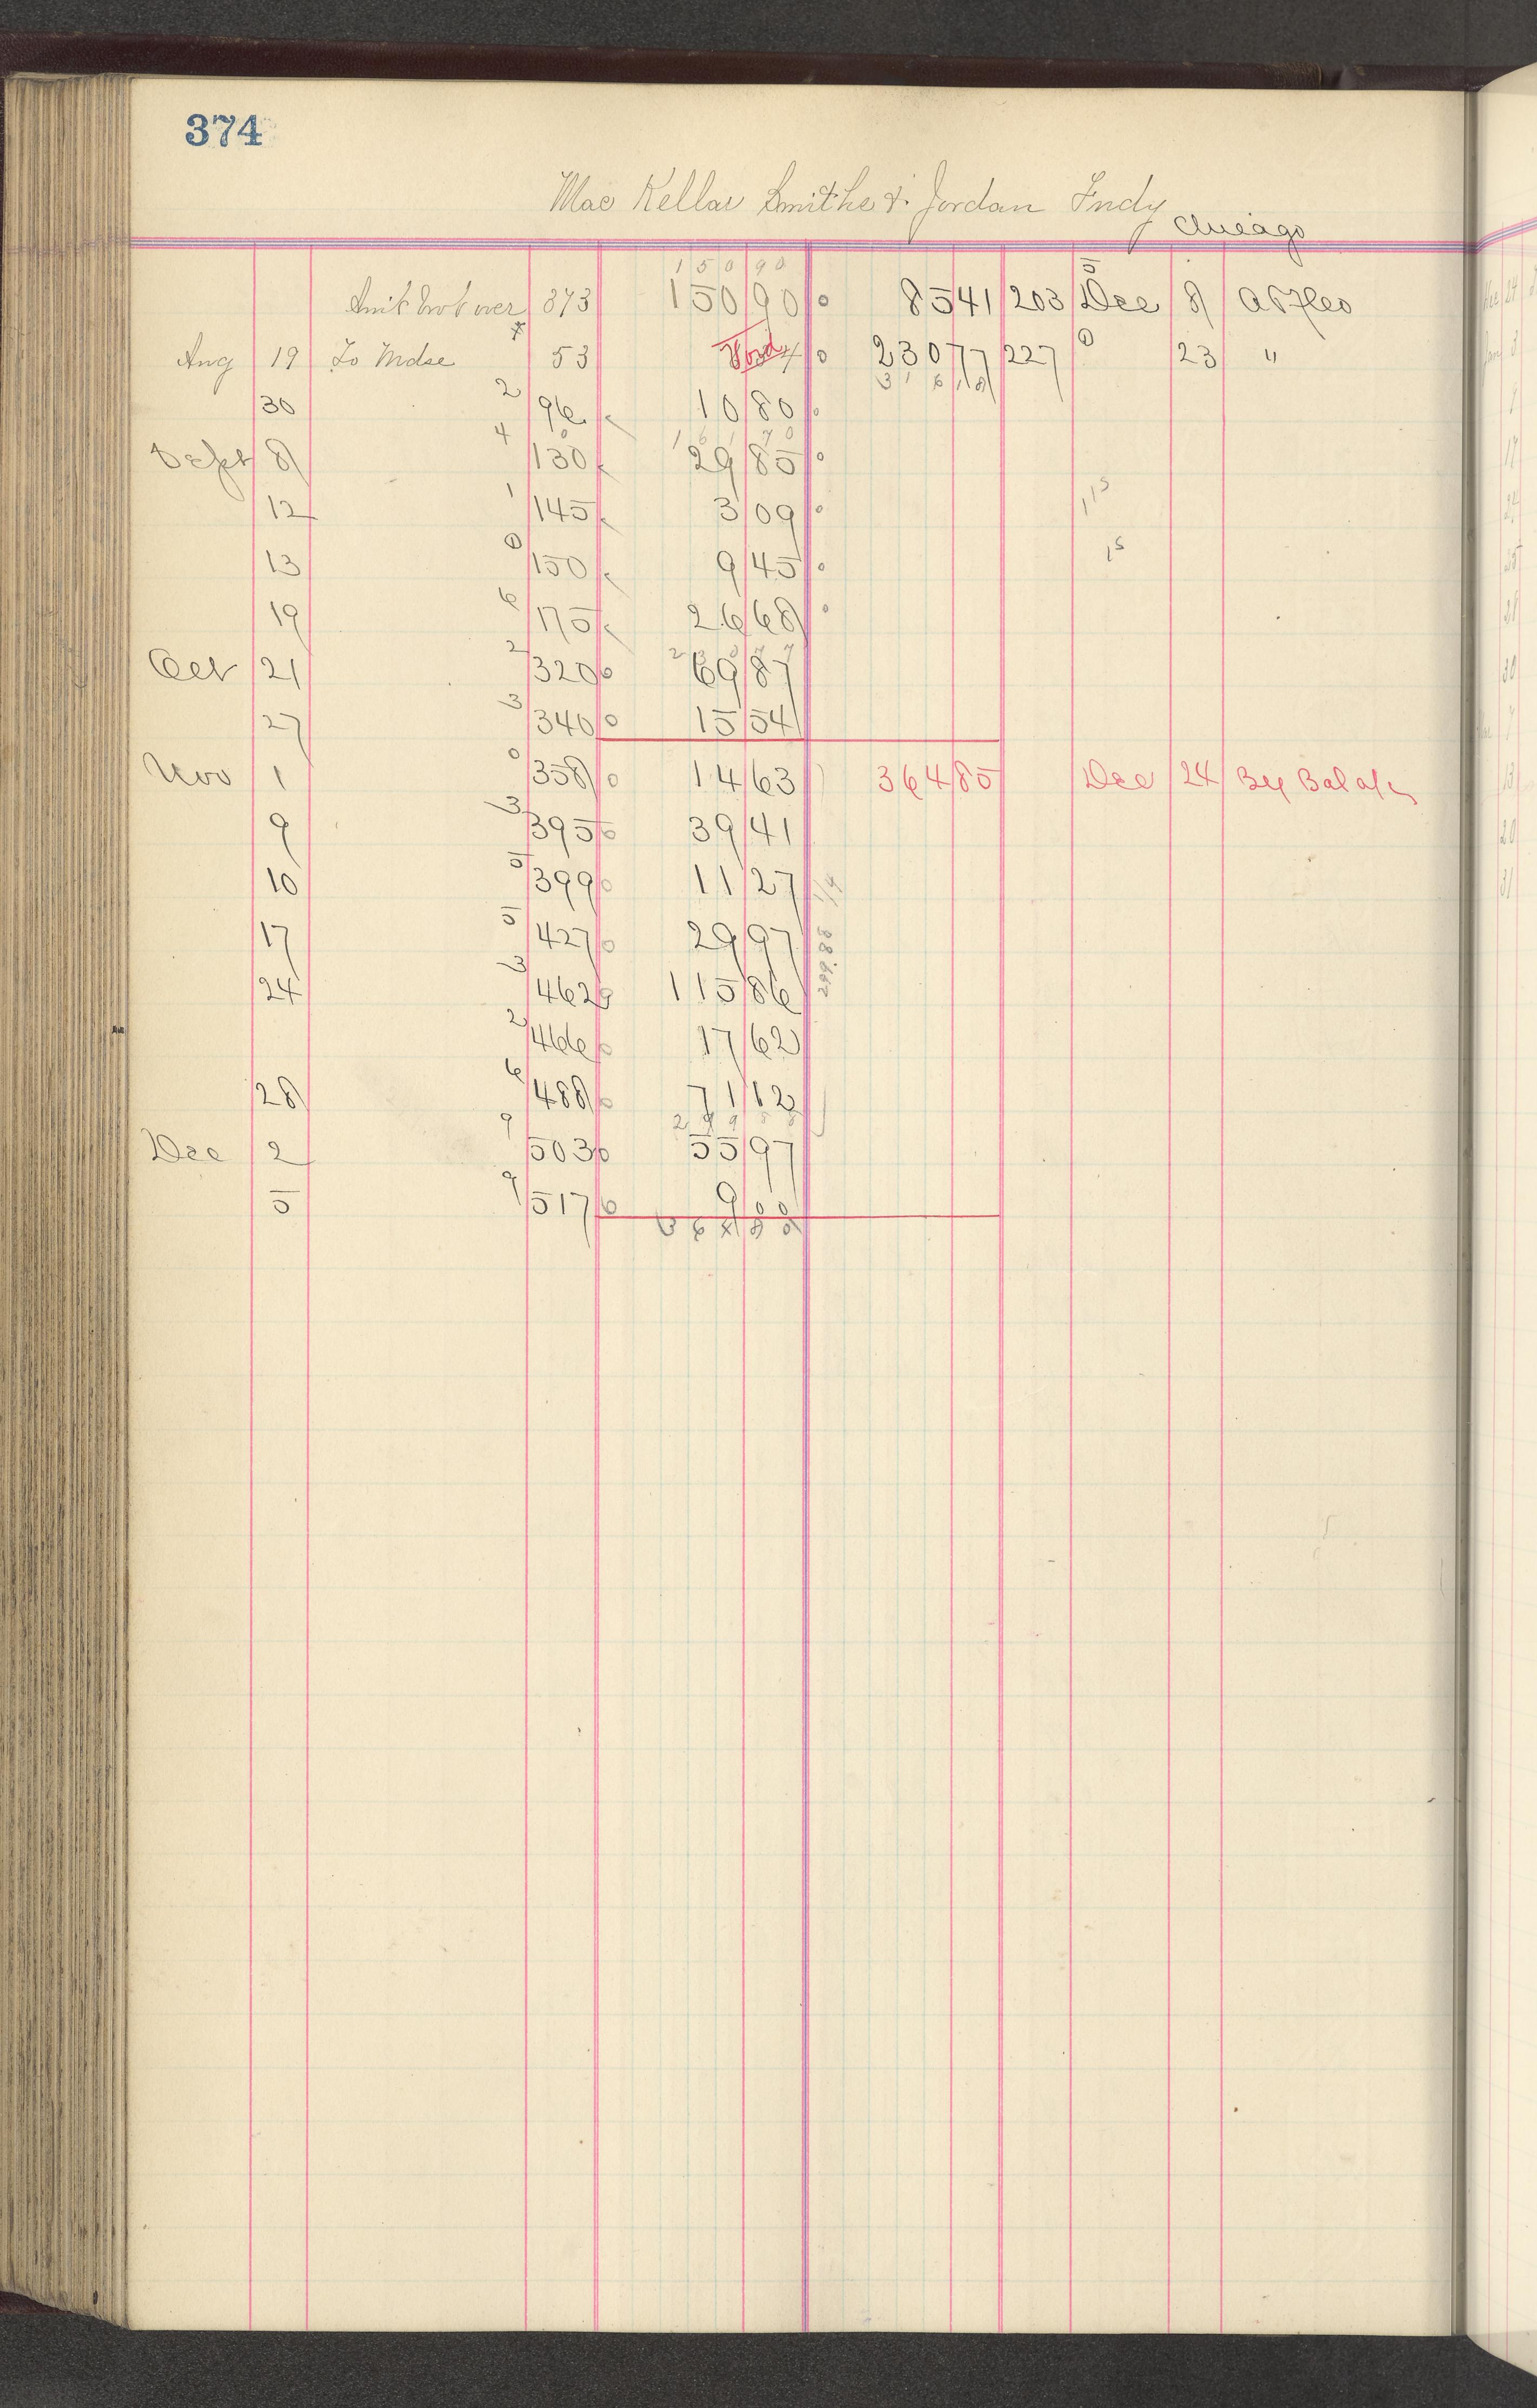 374
Mac Kellar Smiths & Jordan Fndy
Chicago
1 5 0 9 0
Amt brot over 373 150 90 85 41 203 5 Dec 8
Aug 19 To Mdse 53 Void 230 77 227 0 23 "
3 1 6 1 8
30 2 96 10 80
Sept 8 4 130 29 85
12 1 145 3 09
13 0 150 9 45
19 6 175 26 68
Oct 21 2 320 69 87
27 3 340 15 54
Nov 1 0 358 14 63 364 85 Dec 24 By Bal
9 3 395 39 41
10 5 399 11 27
17 5 427 29 97
299.88
24 3 462 115 86
2 466 17 62
28 6 488 71 12
2 9 9 8 8
Dec 2 9 503 55 97
5 9 517 9 00
3 6 4 8 5